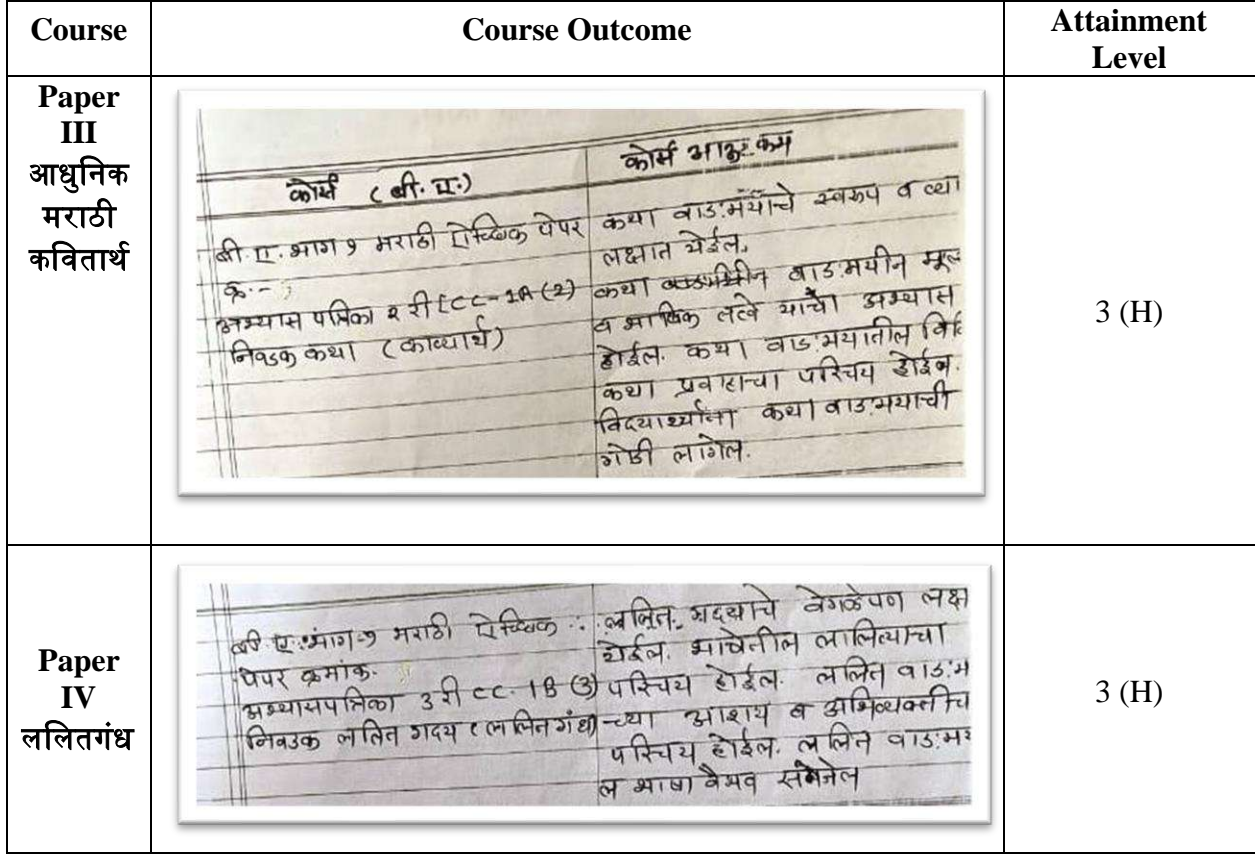 Course Course Outcome Attainment Level
Paper III आधुनिक मराठी कवितार्थ
कोर्स (बी. ए.) कोर्स आऊटकम
बी. ए. भाग १ मराठी ऐच्छिक पेपर क्र. :-
अभ्यास पत्रिका २ री [CC-1A (2)
निवडक कथा (काव्यार्थ)
कथा वाङ्मयाचे स्वरुप व व्या
लक्षात येईल.
कथा वाङ्मयीन मूल्य
व भाषिक तत्वे यांचा अभ्यास
होईल. कथा वाङ्मयातील वि
कथा प्रवाहाचा परिचय होईल.
विद्यार्थ्यांना कथा वाङ्मयाची
गोडी लागेल.
3 (H)
Paper IV ललितगंध
बी. ए. भाग-१ मराठी ऐच्छिक
पेपर क्रमांक.
अभ्यासपत्रिका 3 री CC- 1B (3)
निवडक ललित गद्य (ललितगंध)
ललित गद्याचे वेगळेपण लक्ष
येईल. भाषेतील लालित्याचा
परिचय होईल. ललित वाङ्म
-च्या आशय व अभिव्यक्तीच
परिचय होईल. ललित वाङ्मय
ल भाषा वैभव समजेल
3 (H)